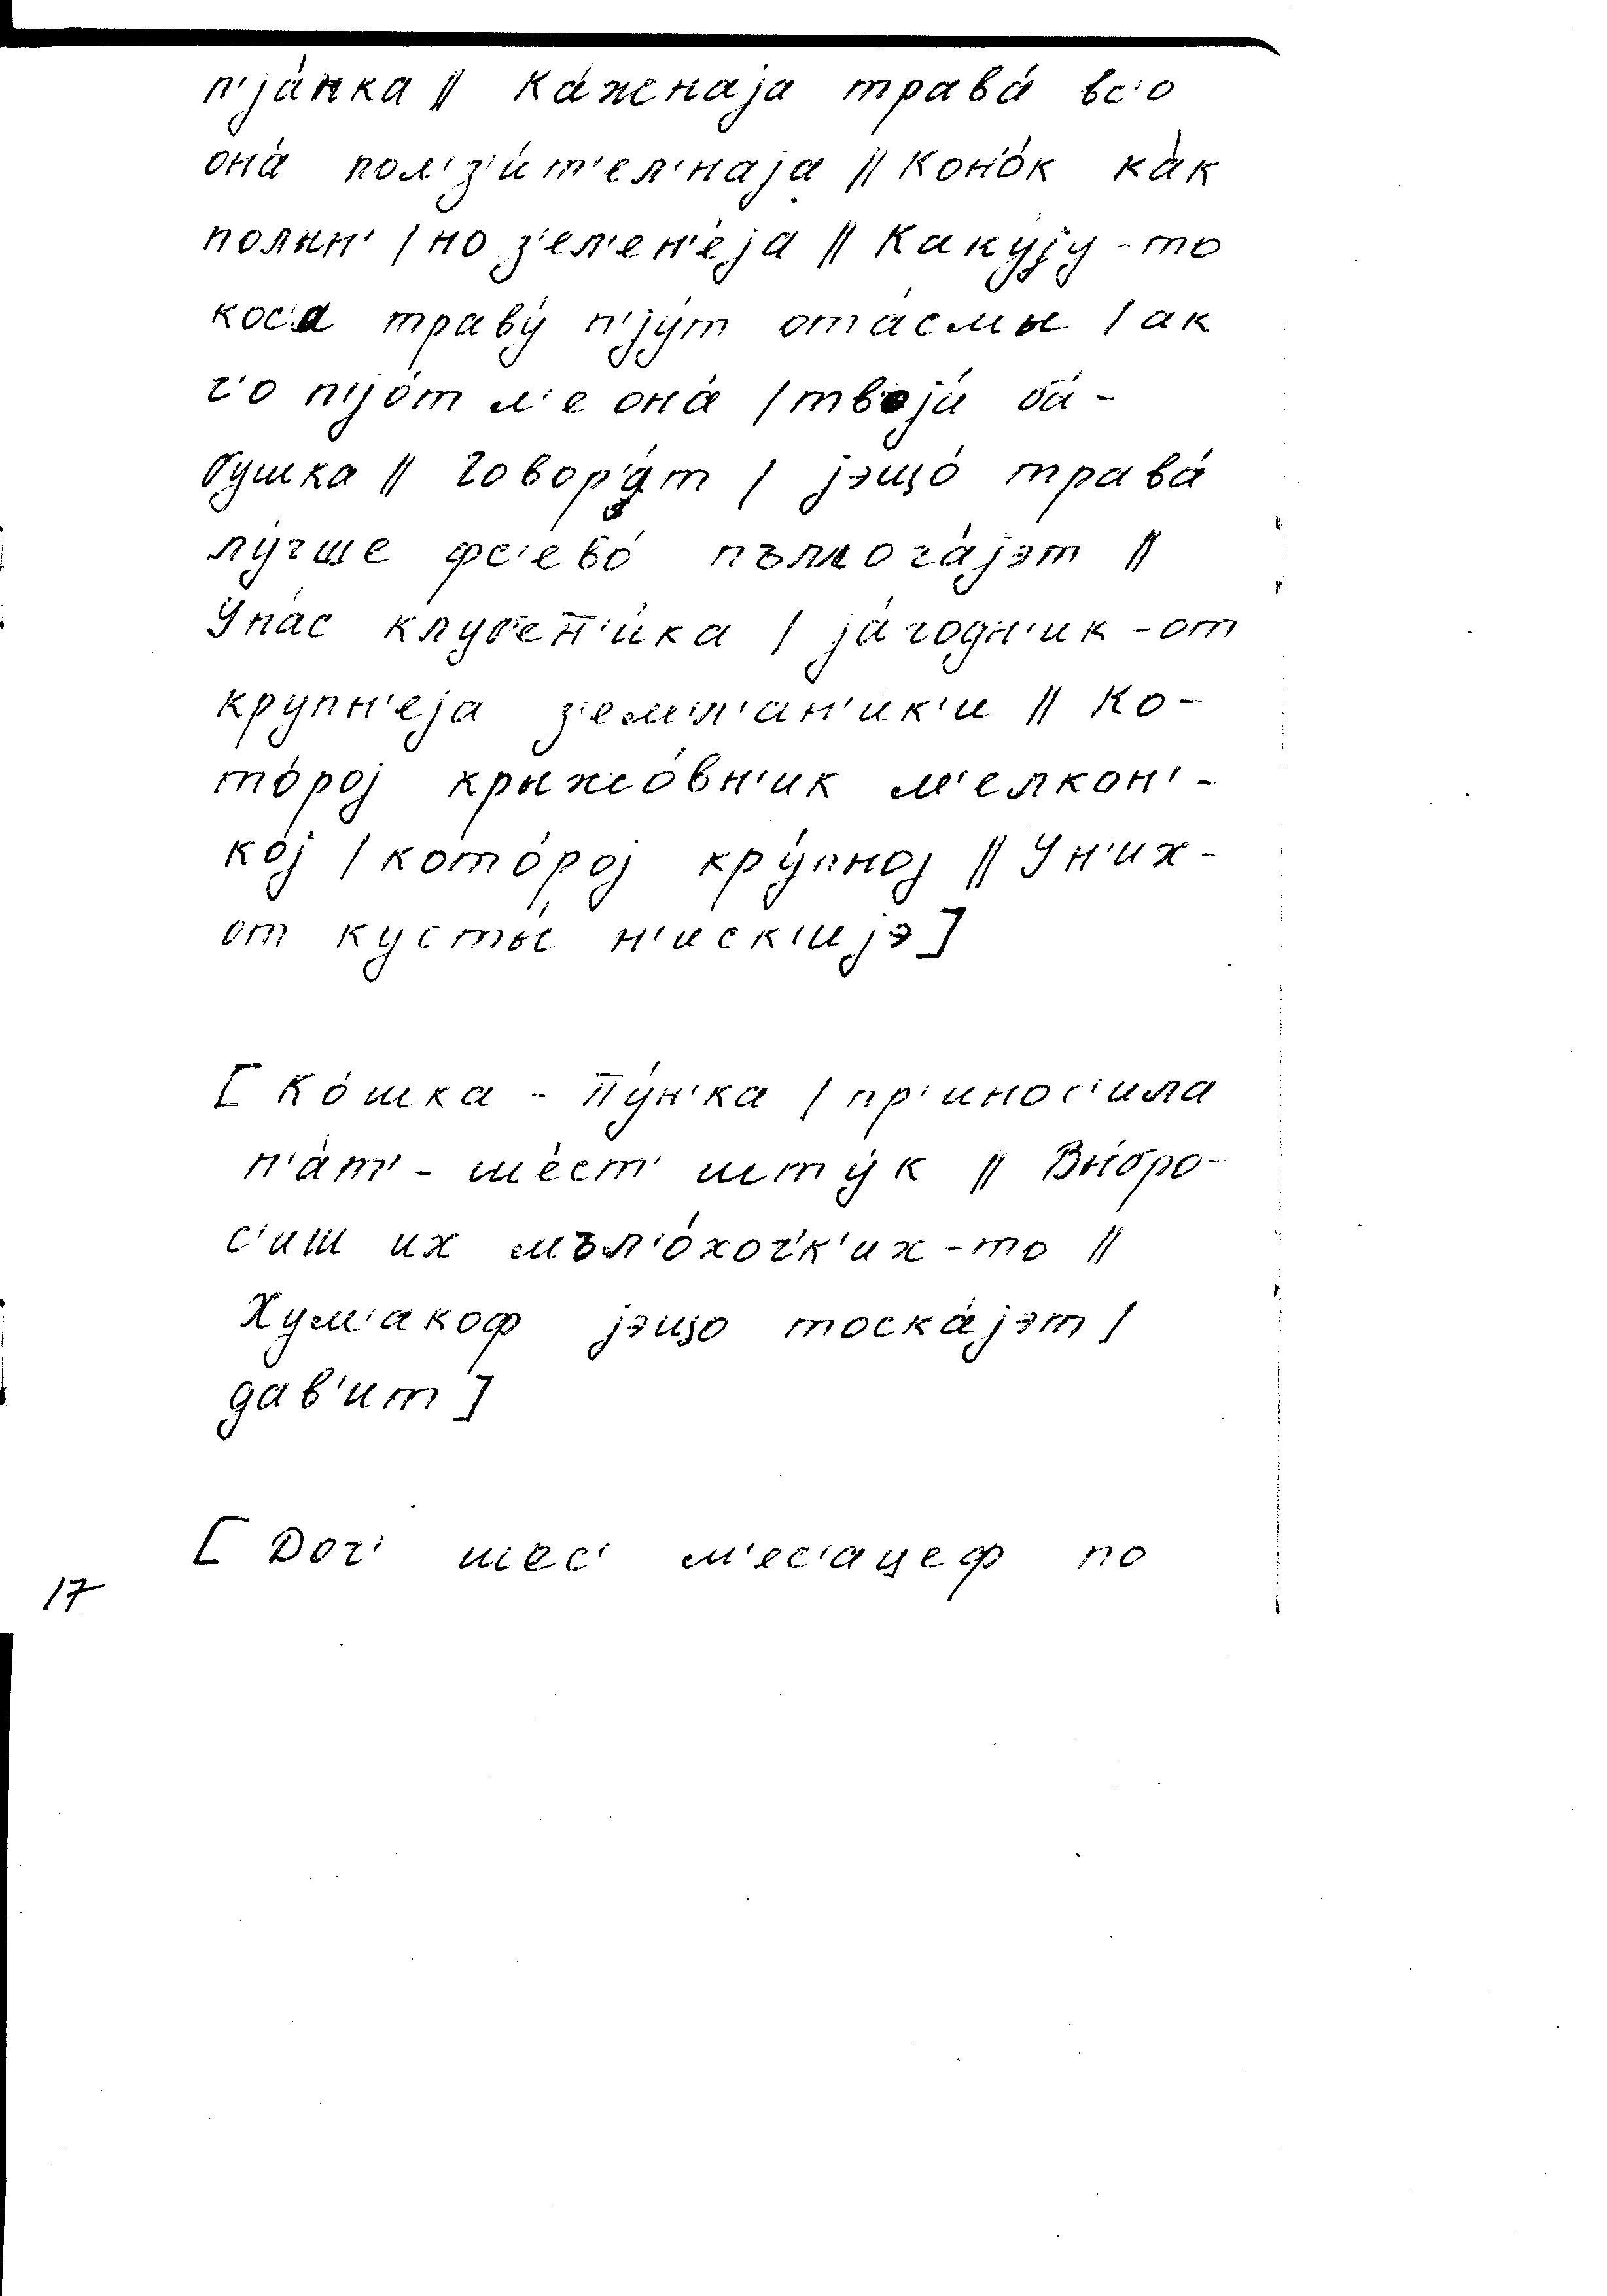 п'jа́нка || Ка́жнаjа трава́ вс'о
она́ пол'з'и́т'ел'наjа || Кон'о́к ка́к
полын' | но з'ел'ен'е́jа || Каку́jу-то
кос'а траву́ п'jу́т ота́смы | ак
ч'о п'jо́т л'е она́ | твоjа́ ба́-
бушка || Говор'а́т | jэщо́ трава́
лу́чше фс'ево́ пъмога́jэт ||
У на́с клуб'ен'и́ка | jа́годн'ик-от
крупн'еjа з'емл'ан'ик'и || Ко-
то́роj крыжо́вн'ик м'елкон'-
коj | кото́роj кру́пноj || У н'их-
от кусты́ н'иск'иjэ]
[Ко́шка - Пу́н'ка | пр'инос'ила
п'а́т'-ше́ст' шту́к || Вы́бро-
с'иш их мъл'о́хоч'к'их-то ||
Хум'акоф jэщо тоска́jэт |
дав'ит]
[Доч' шес' м'ес'ацеф по
17